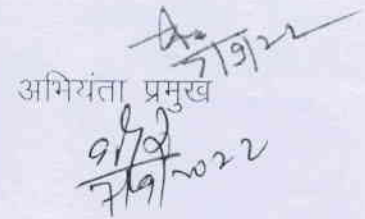 7/9/22
अभियंता प्रमुख
7/9/2022